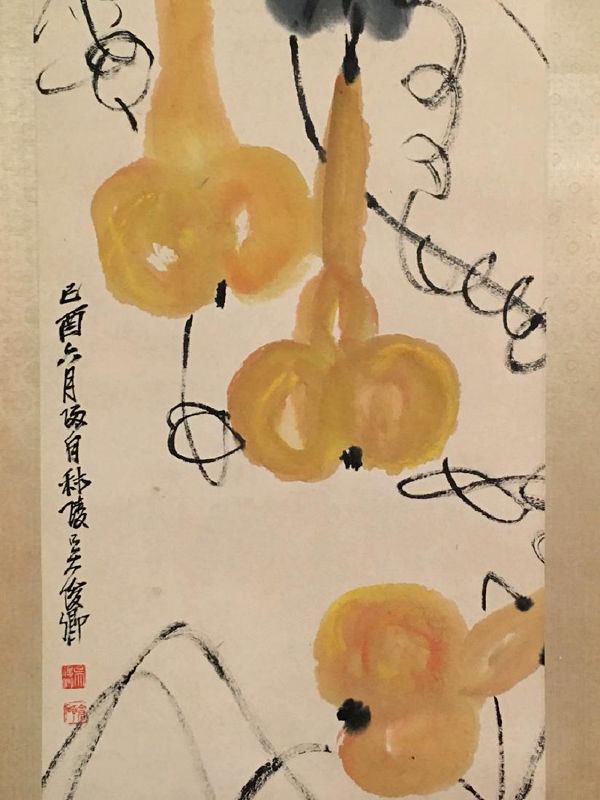 己酉六月返自秣陵吳俊卿